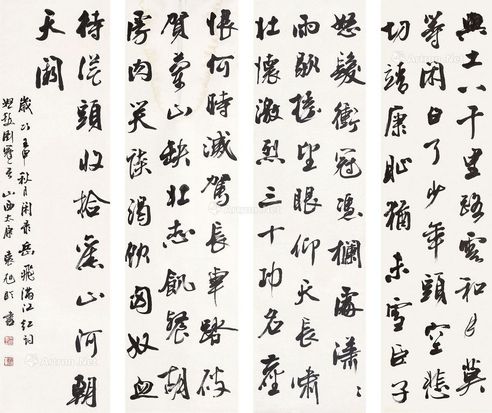 怒髮衝冠憑欄處瀟瀟
雨歇擡望眼仰天長嘯
壯懷激烈三十功名塵
與土八千里路雲和月莫
等閑白了少年頭空悲
切靖康恥猶未雪臣子
恨何時滅駕長車踏破
賀蘭山缺壯志飢餐胡
虜肉笑談渴飲匈奴血
待從頭收拾舊山河朝
天闕
歲次壬申秋月閑录岳飛滿江紅詞
山西太原